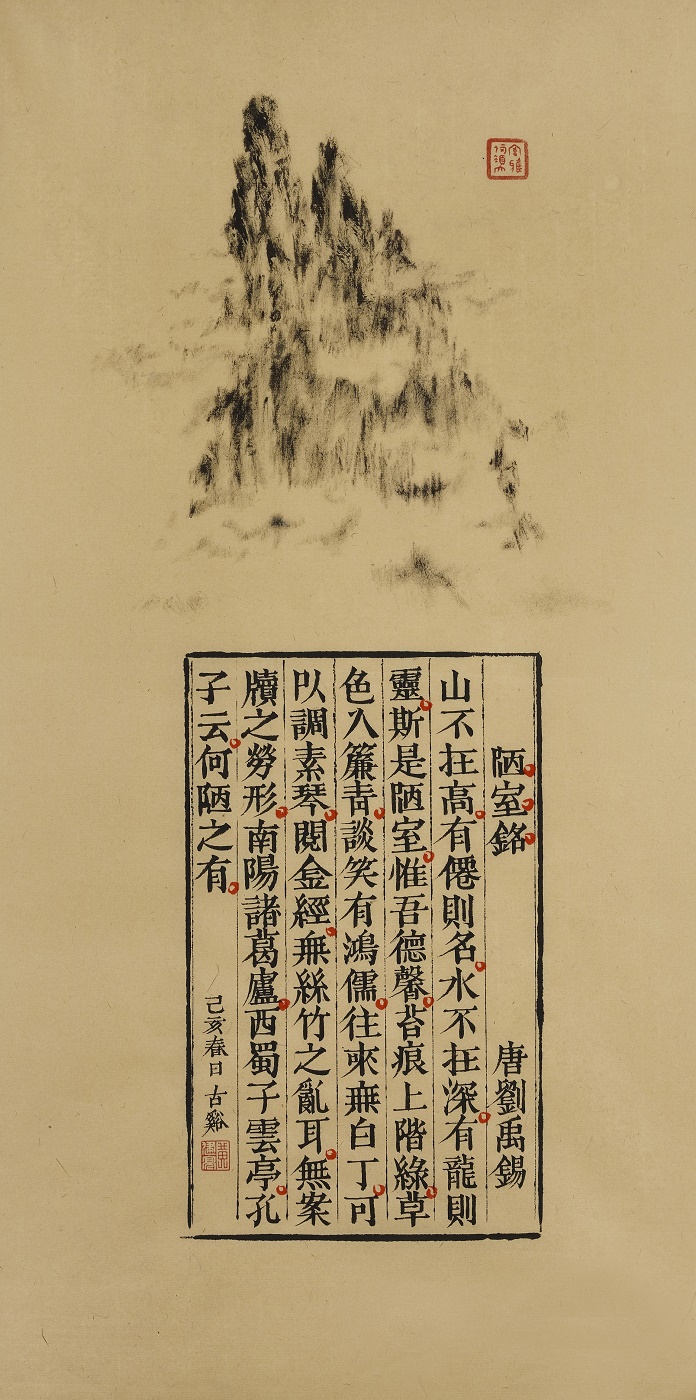 室雅何須大
陋室銘 唐劉禹錫
山不在高有僊則名水不在深有龍則
靈斯是陋室惟吾德馨苔痕上階綠草
色入簾青談笑有鴻儒往來無白丁可
以調素琴閱金經無絲竹之亂耳無案
牘之勞形南陽諸葛廬西蜀子雲亭孔
子云何陋之有
己亥春日古谿